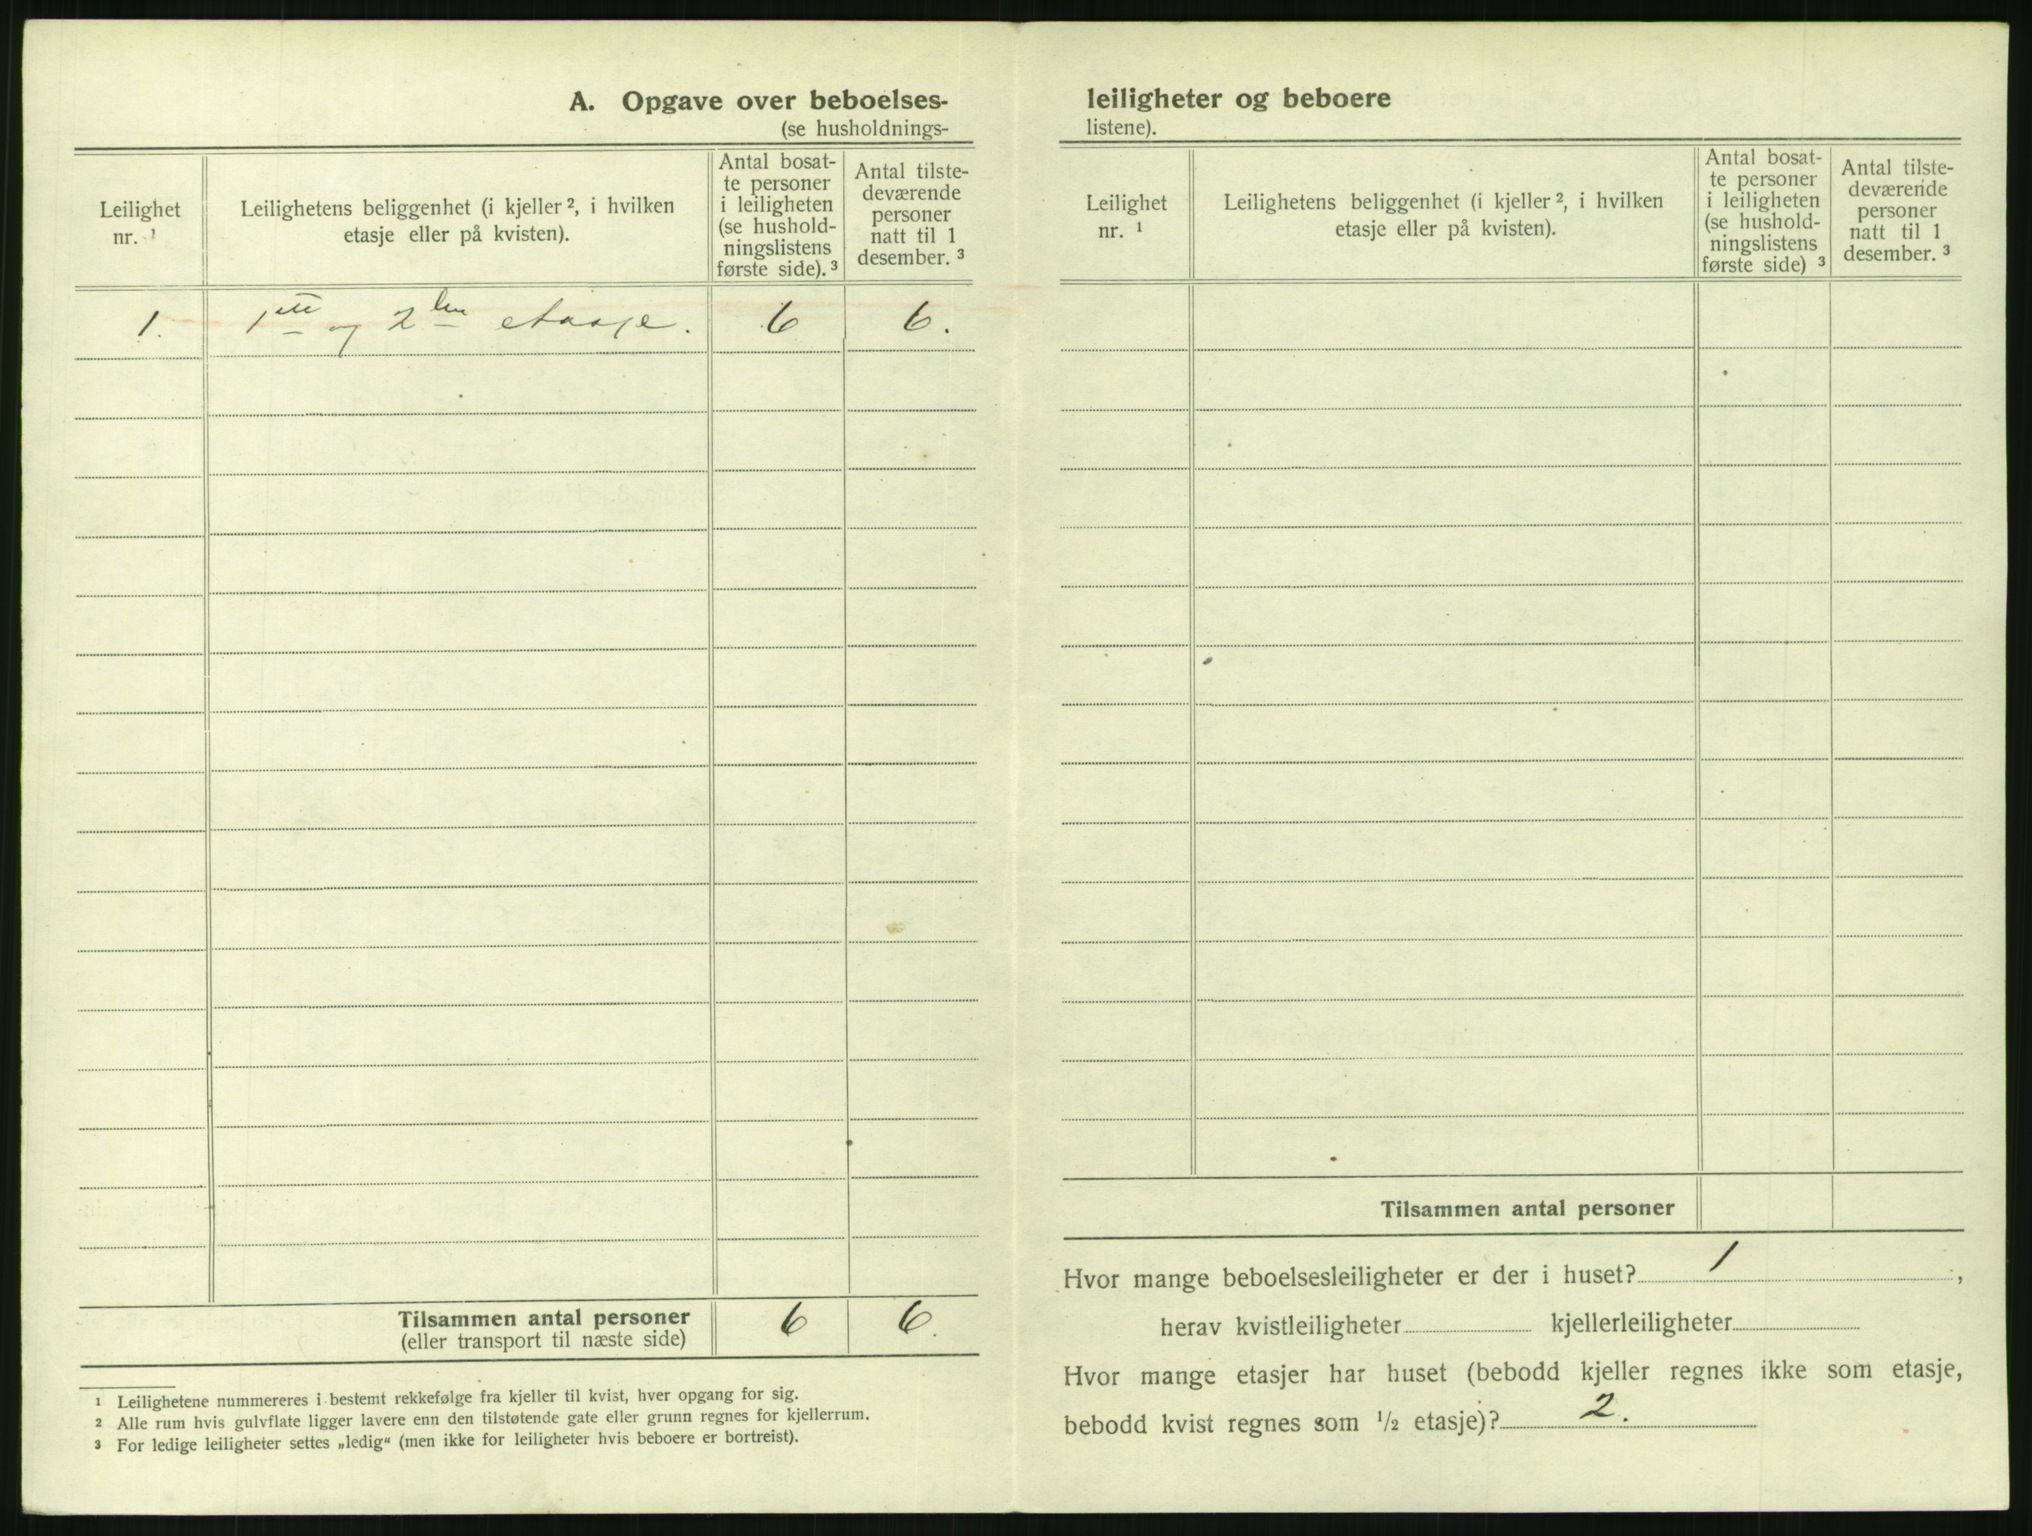 A. Opgave over beboelses-
(se husholdnings-
Leilighet
nr. ¹
Leilighetens beliggenhet (i kjeller ², i hvilken
etasje eller på kvisten).
Antal bosat-
te personer
i leiligheten
(se hushold-
ningslistens
første side). ³
Antal tilste-
deværende
personer
natt til 1
desember. ³
1. 1ste og 2den etasje. 6 6.
Tilsammen antal personer 6 6.
(eller transport til næste side)
¹ Leilighetene nummereres i bestemt rekkefølge fra kjeller til kvist, hver opgang for sig.
² Alle rum hvis gulvflate ligger lavere enn den tilstøtende gate eller grunn regnes for kjellerrum.
³ For ledige leiligheter settes „ledig“ (men ikke for leiligheter hvis beboere er bortreist).
leiligheter og beboere
listene).
Leilighet
nr. ¹
Leilighetens beliggenhet (i kjeller ², i hvilken
etasje eller på kvisten).
Antal bosat-
te personer
i leiligheten
(se hushold-
ningslistens
første side) ³
Antal tilste-
deværende
personer
natt til 1
desember. ³
Tilsammen antal personer
Hvor mange beboelsesleiligheter er der i huset? 1 ,
herav kvistleiligheter kjellerleiligheter
Hvor mange etasjer har huset (bebodd kjeller regnes ikke som etasje,
bebodd kvist regnes som ½ etasje)? 2.